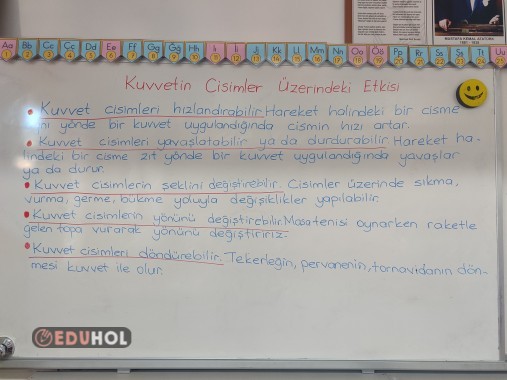 MUSTAFA KEMAL ATATÜRK
Aa Bb Cc Çç Dd Ee Ff Gg Ğğ Hh Iı İi Jj Kk Ll Mm Nn Oo Öö Pp Rr Ss Şş Tt Uu
Kuvvetin Cisimler Üzerindeki Etkisi
Kuvvet cisimleri hızlandırabilir. Hareket halindeki bir cisme
nı yönde bir kuvvet uygulandığında cismin hızı artar.
Kuvvet cisimleri yavaşlatabilir ya da durdurabilir Hareket ha-
lindeki bir cisme zıt yönde bir kuvvet uygulandığında yavaşlar
ya da durur.
Kuvvet cisimlerin şeklini değiştirebilir. Cisimler üzerinde sıkma,
vurma, germe, bükme yoluyla değişiklikler yapılabilir.
Kuvvet cisimlerin yönünü değiştirebilir. Masa tenisi oynarken raketle
gelen topa vurarak yönünü değiştiririz.
Kuvvet cisimleri döndürebilir. Tekerleğin, pervanenin, tornavidanın dön-
mesi kuvvet ile olur.
EDUHOL